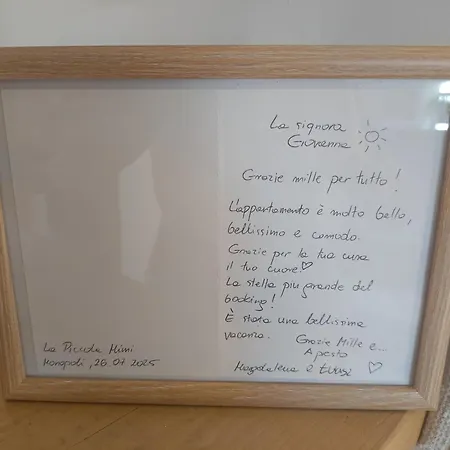 La signora
Giovanna
Grazie mille per tutto!
L'appartamento è molto bello,
bellissimo e comodo.
Grazie per la tua cura
il tuo cuore♡
La stella piu grande del
booking!
È stata una bellissima
vacanza.
Grazie Mille e...
Apesto
Magdalena e
La Piccola Mimi
Monopoli, 26.07.2025